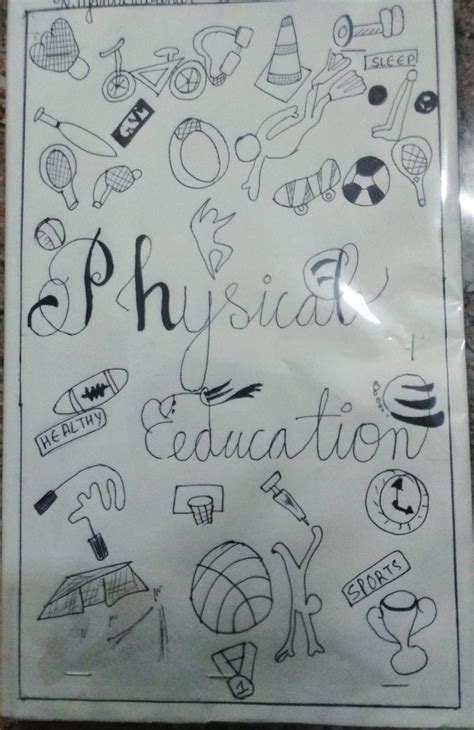 SLEEP
GYM
Physical
Eeducation
HEALTHY
SPORTS
1